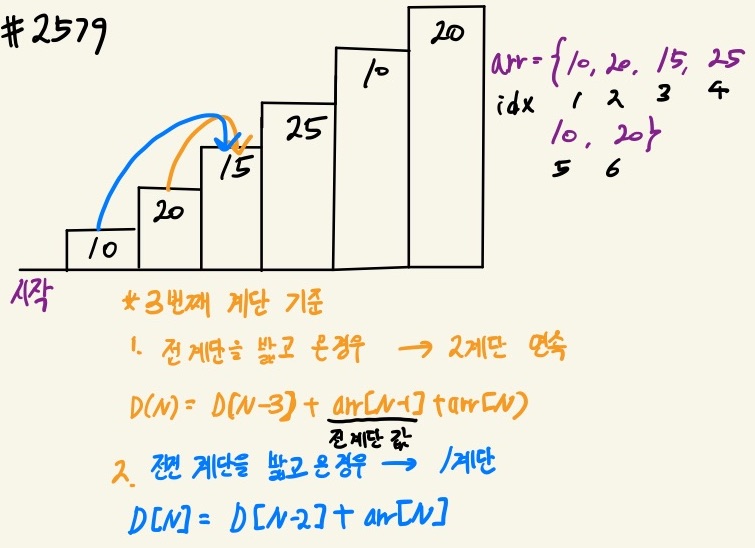 #2579
20
10
25
15
20
10
arr = {10, 20, 15, 25
idx 1 2 3 4
10, 20}
5 6
시작
*3번째 계단 기준
1. 전 계단을 밟고 온경우 → 2계단 연속
D(N) = D[N-3] + arr[N-1] + arr[N)
전 계단 값
2. 전전 계단을 밟고 온경우 → 1계단
D[N] = D[N-2] + arr[N]